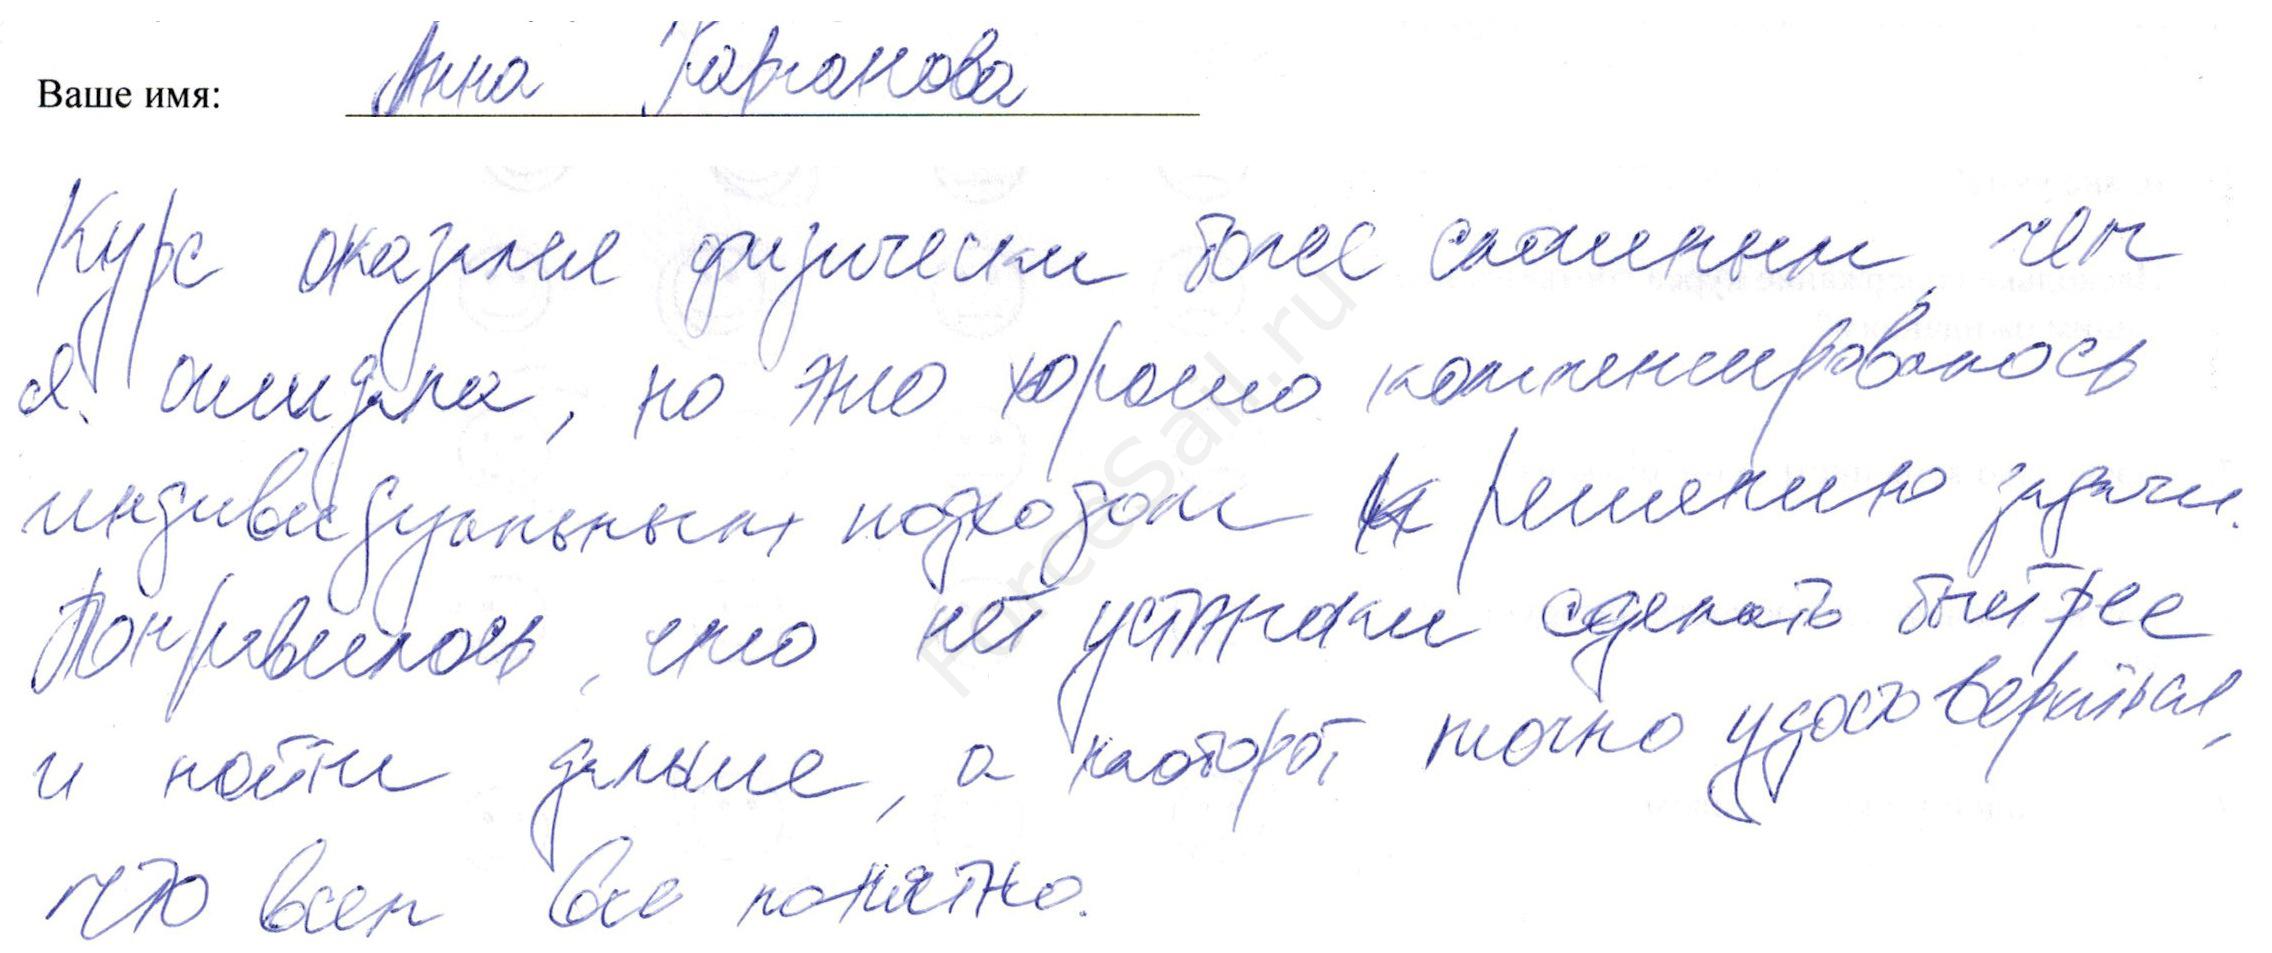 Ваше имя: Анна
Курс оказался физически более сложным, чем
я ожидала, но это хорошо компенсировалось
индивидуальным подходом к решению задачи.
Понравилось, что нет установки сделать быстрее
и пойти дальше, а наоборот, точно удостовериться,
что всем все понятно.
ForceSail.ru